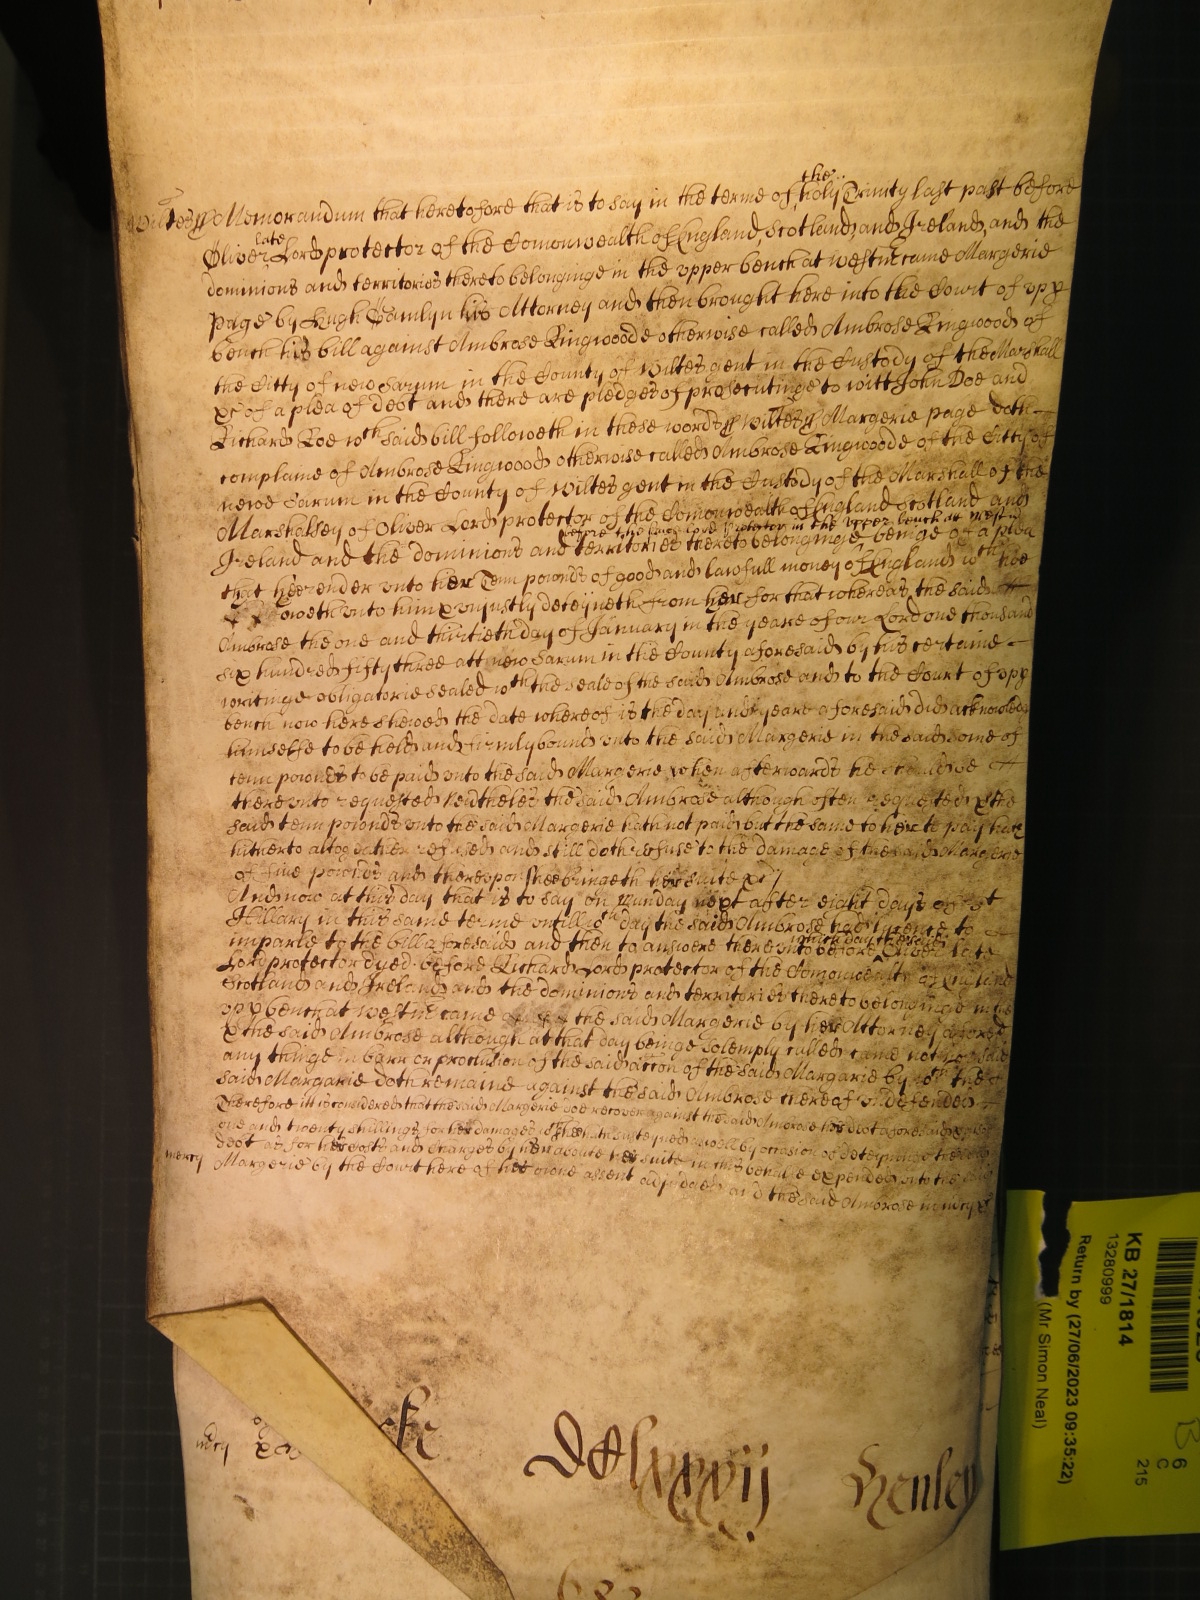 Wiltes Memorandum that heretofore that is to say in the terme of the holy Trinity last past before
Oliver late Lord protector of the Comonwealth of England Scotland and Ireland and the
dominions and territories thereto belonginge in the upper bench at westm came Margerie
page by Hugh Hamlyn his Attorney and then brought here into the Court of upp
bench his bill against Ambrose Ringwoode otherwise called Ambrose Ringwood of
the Citty of new Sarum in the County of Wiltes gent in the Custody of the Marshall
&c of a plea of debt and there are pledges of prosecutinge to witt John Doe and
Richard Roe wch said bill followeth in these words Wiltes Margerie page doth
complaine of Ambrose Ringwood otherwise called Ambrose Ringwoode of the Citty of
newe Sarum in the County of Wiltes gent in the Custody of the Marshall of the
Marshalsey of Oliver Lord protector of the Comonwealth of England Scotland and
Ireland and the dominions and territories thereto belonginge before the said Lord Protector in the upper bench at westm beinge of a plea
that hee render unto her Tenn pounds of good and lawfull money of England wch hee
oweth unto him & unjustly deteyneth from her for that whereas the said
Ambrose the one and thirtieth day of January in the yeare of our Lord one thousand
six hundred fifty three att new Sarum in the County aforesaid by his certaine
writinge obligatorie sealed wth the seale of the said Ambrose and to the Court of upp
bench now here shewed the date whereof is the day and yeare aforesaid did acknowledg
himselfe to be held and firmly bound unto the said Margerie in the said some of
tenn pounds to be paid unto the said Margerie when afterwards he should be
thereunto requested Neutheles the said Ambrose although often requested &c the
said tenn pounds unto the said Margerie hath not paid but the same to her to pay hath
hitherto altogeather refused and still doth refuse to the damage of the said Margerie
of five pounds and thereupon shee bringeth her suite &c
And now at this day that is to say on Munday next after eight days of St
Hillary in this same terme untill wch day the said Ambrose had licence to
imparle to the bill aforesaid and then to answere thereunto before which day the said Oliver late
Lord protector dyed before Richard Lord protector of the Comonwealth of England
Scotland and Ireland and the dominions and territories thereto belonginge in the
upp bench at westm came the said Margerie by her Attorney aforesd
& the said Ambrose although at that day beinge solemply called came not nor said
any thinge in barr or preclusion of the said accon of the said Margarie by wch the
said Margarie doth remaine against the said Ambrose thereof undefended
Therefore itt is considered that the said Margerie doe recover against the said Ambrose his debt aforesaid
one and twenty shillings for her damages wch shee hath susteyned aswell by occasion of deteyninge the
debt as for her costs and charges by her aboute her suite in this behalfe expended unto the said
mercy Margerie by the Court here of her owne assent adjudged and the said Ambrose in mcy &c
mcy
DClxxxvij Henley
KB 27/1814
13280999
Return by (27/06/2023 09:35:22)
(Mr Simon Neal)
B 6
C
215